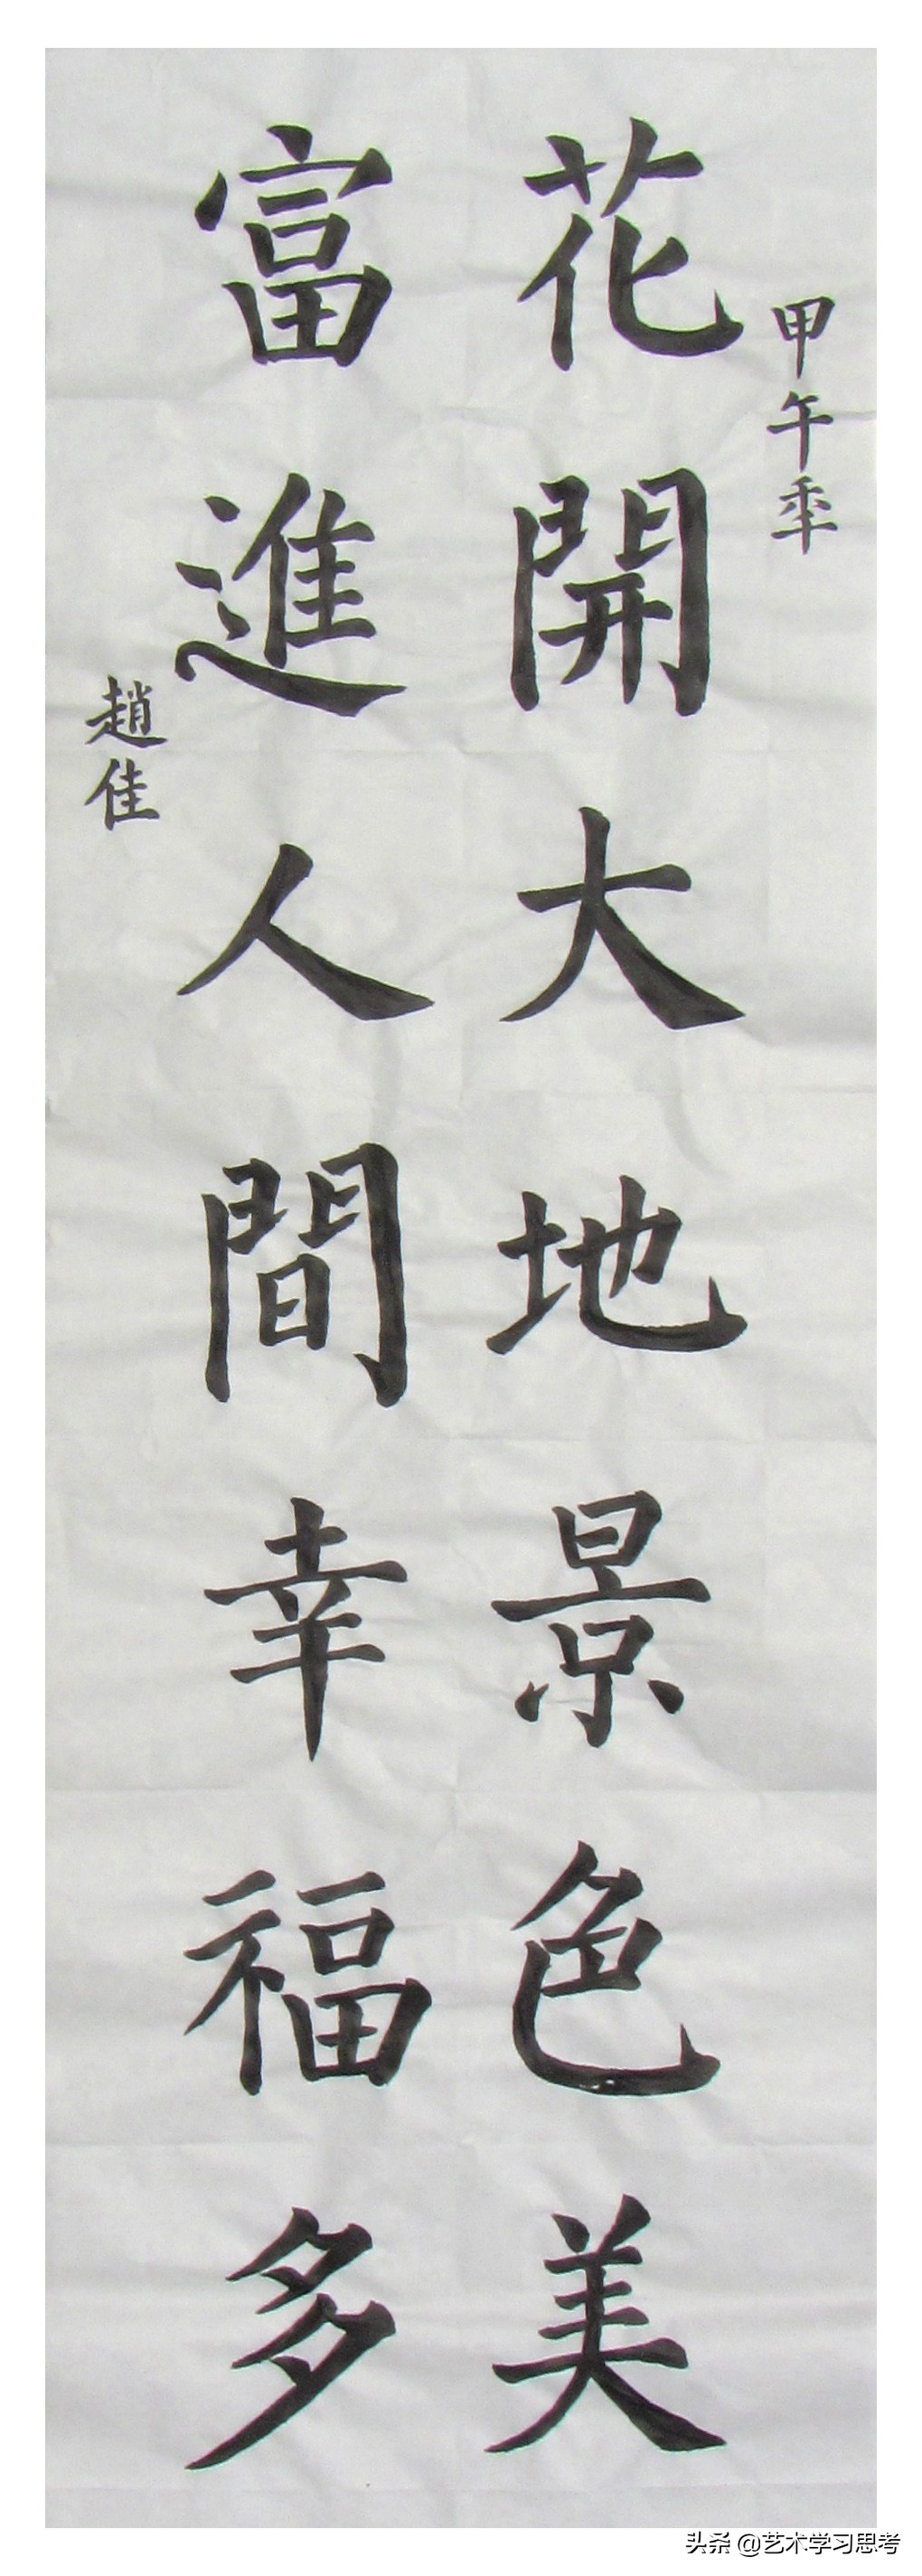 甲午年
花開大地景色美
富進人間幸福多
趙佳
头条 @艺术学习思考